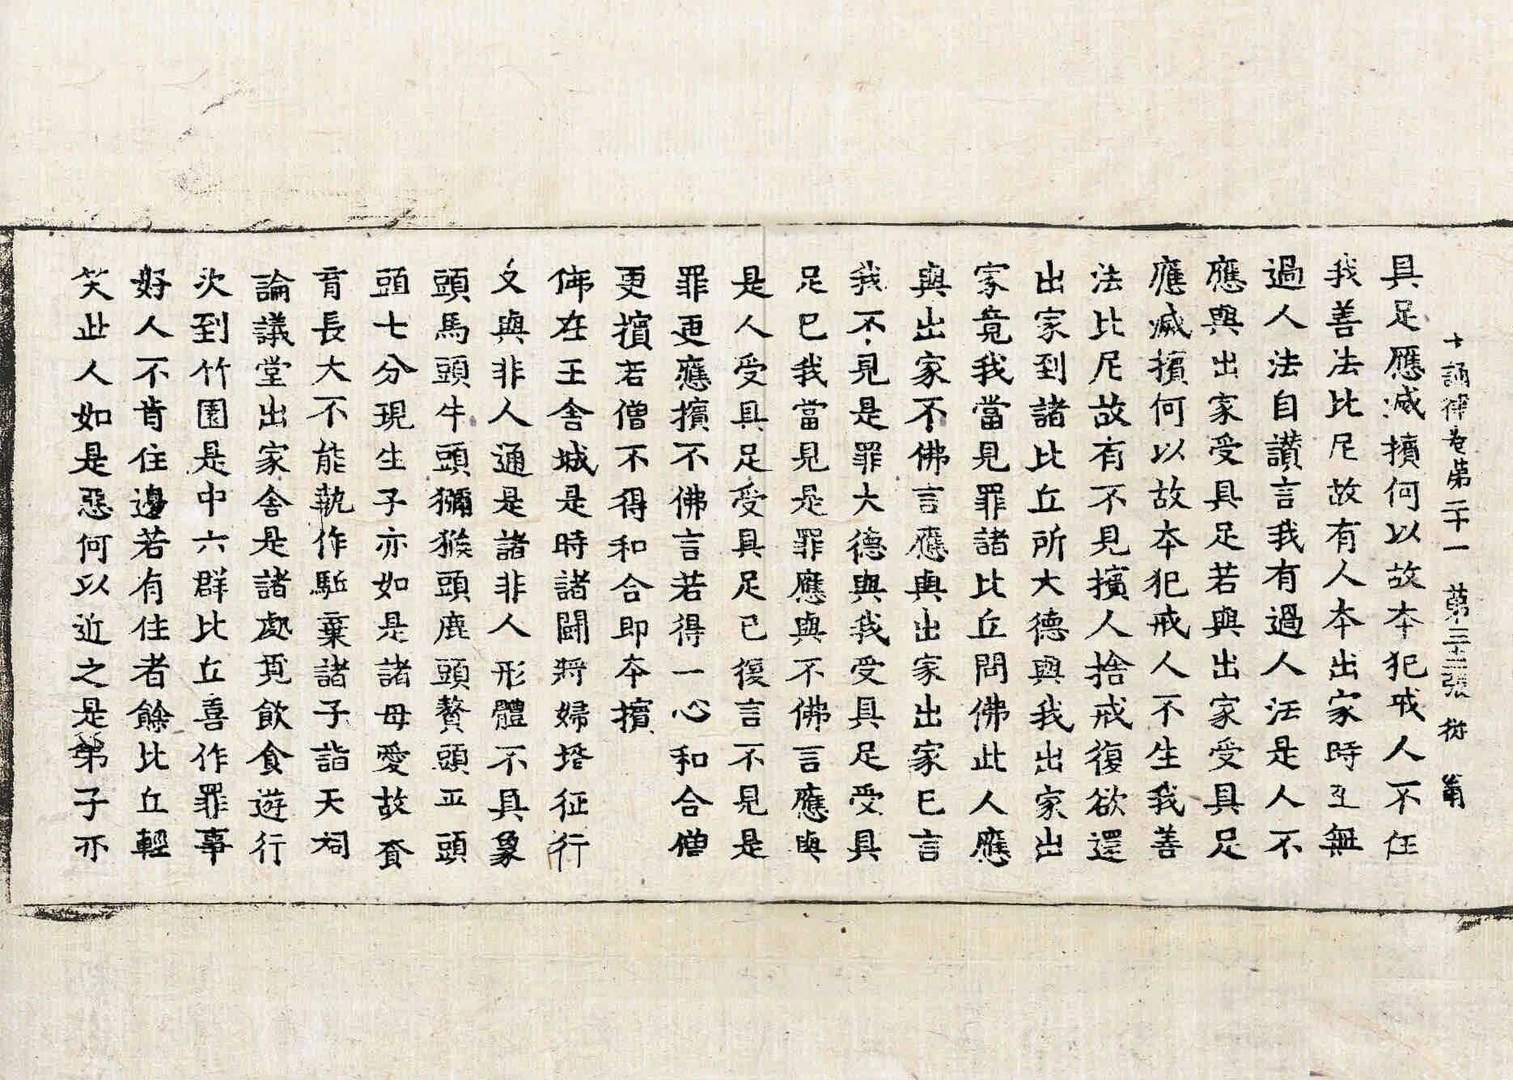 十誦律卷第二十一 第三十二張
具足應滅擯何以故本犯戒人不任
我善法比尼故有人本出家時互無
過人法自讃言我有過人法是人不
應與出家受具足若與出家受具足
應滅擯何以故本犯戒人不生我善
法比尼故有不見擯人捨戒復欲還
出家到諸比丘所大德與我出家出
家竟我當見罪諸比丘問佛此人應
與出家不佛言應與出家出家已言
我不見是罪大德與我受具足受具
足已我當見是罪應與不佛言應與
是人受具足受具足已復言不見是
罪更應擯不佛言若得一心和合僧
更擯若僧不得和合即本擯
佛在王舍城是時諸鬪將婦婿征行
久與非人通是諸非人形體不具象
頭馬頭牛頭獼猴頭鹿頭贅頭平頭
頭七分現生子亦如是諸母愛故養
育長大不能執作駈棄諸子詣天祠
論議堂出家舍是諸處覓飲食遊行
次到竹園是中六群比丘喜作罪事
好人不肯住邊若有住者餘比丘輕
笑此人如是惡何以近之是弟子亦